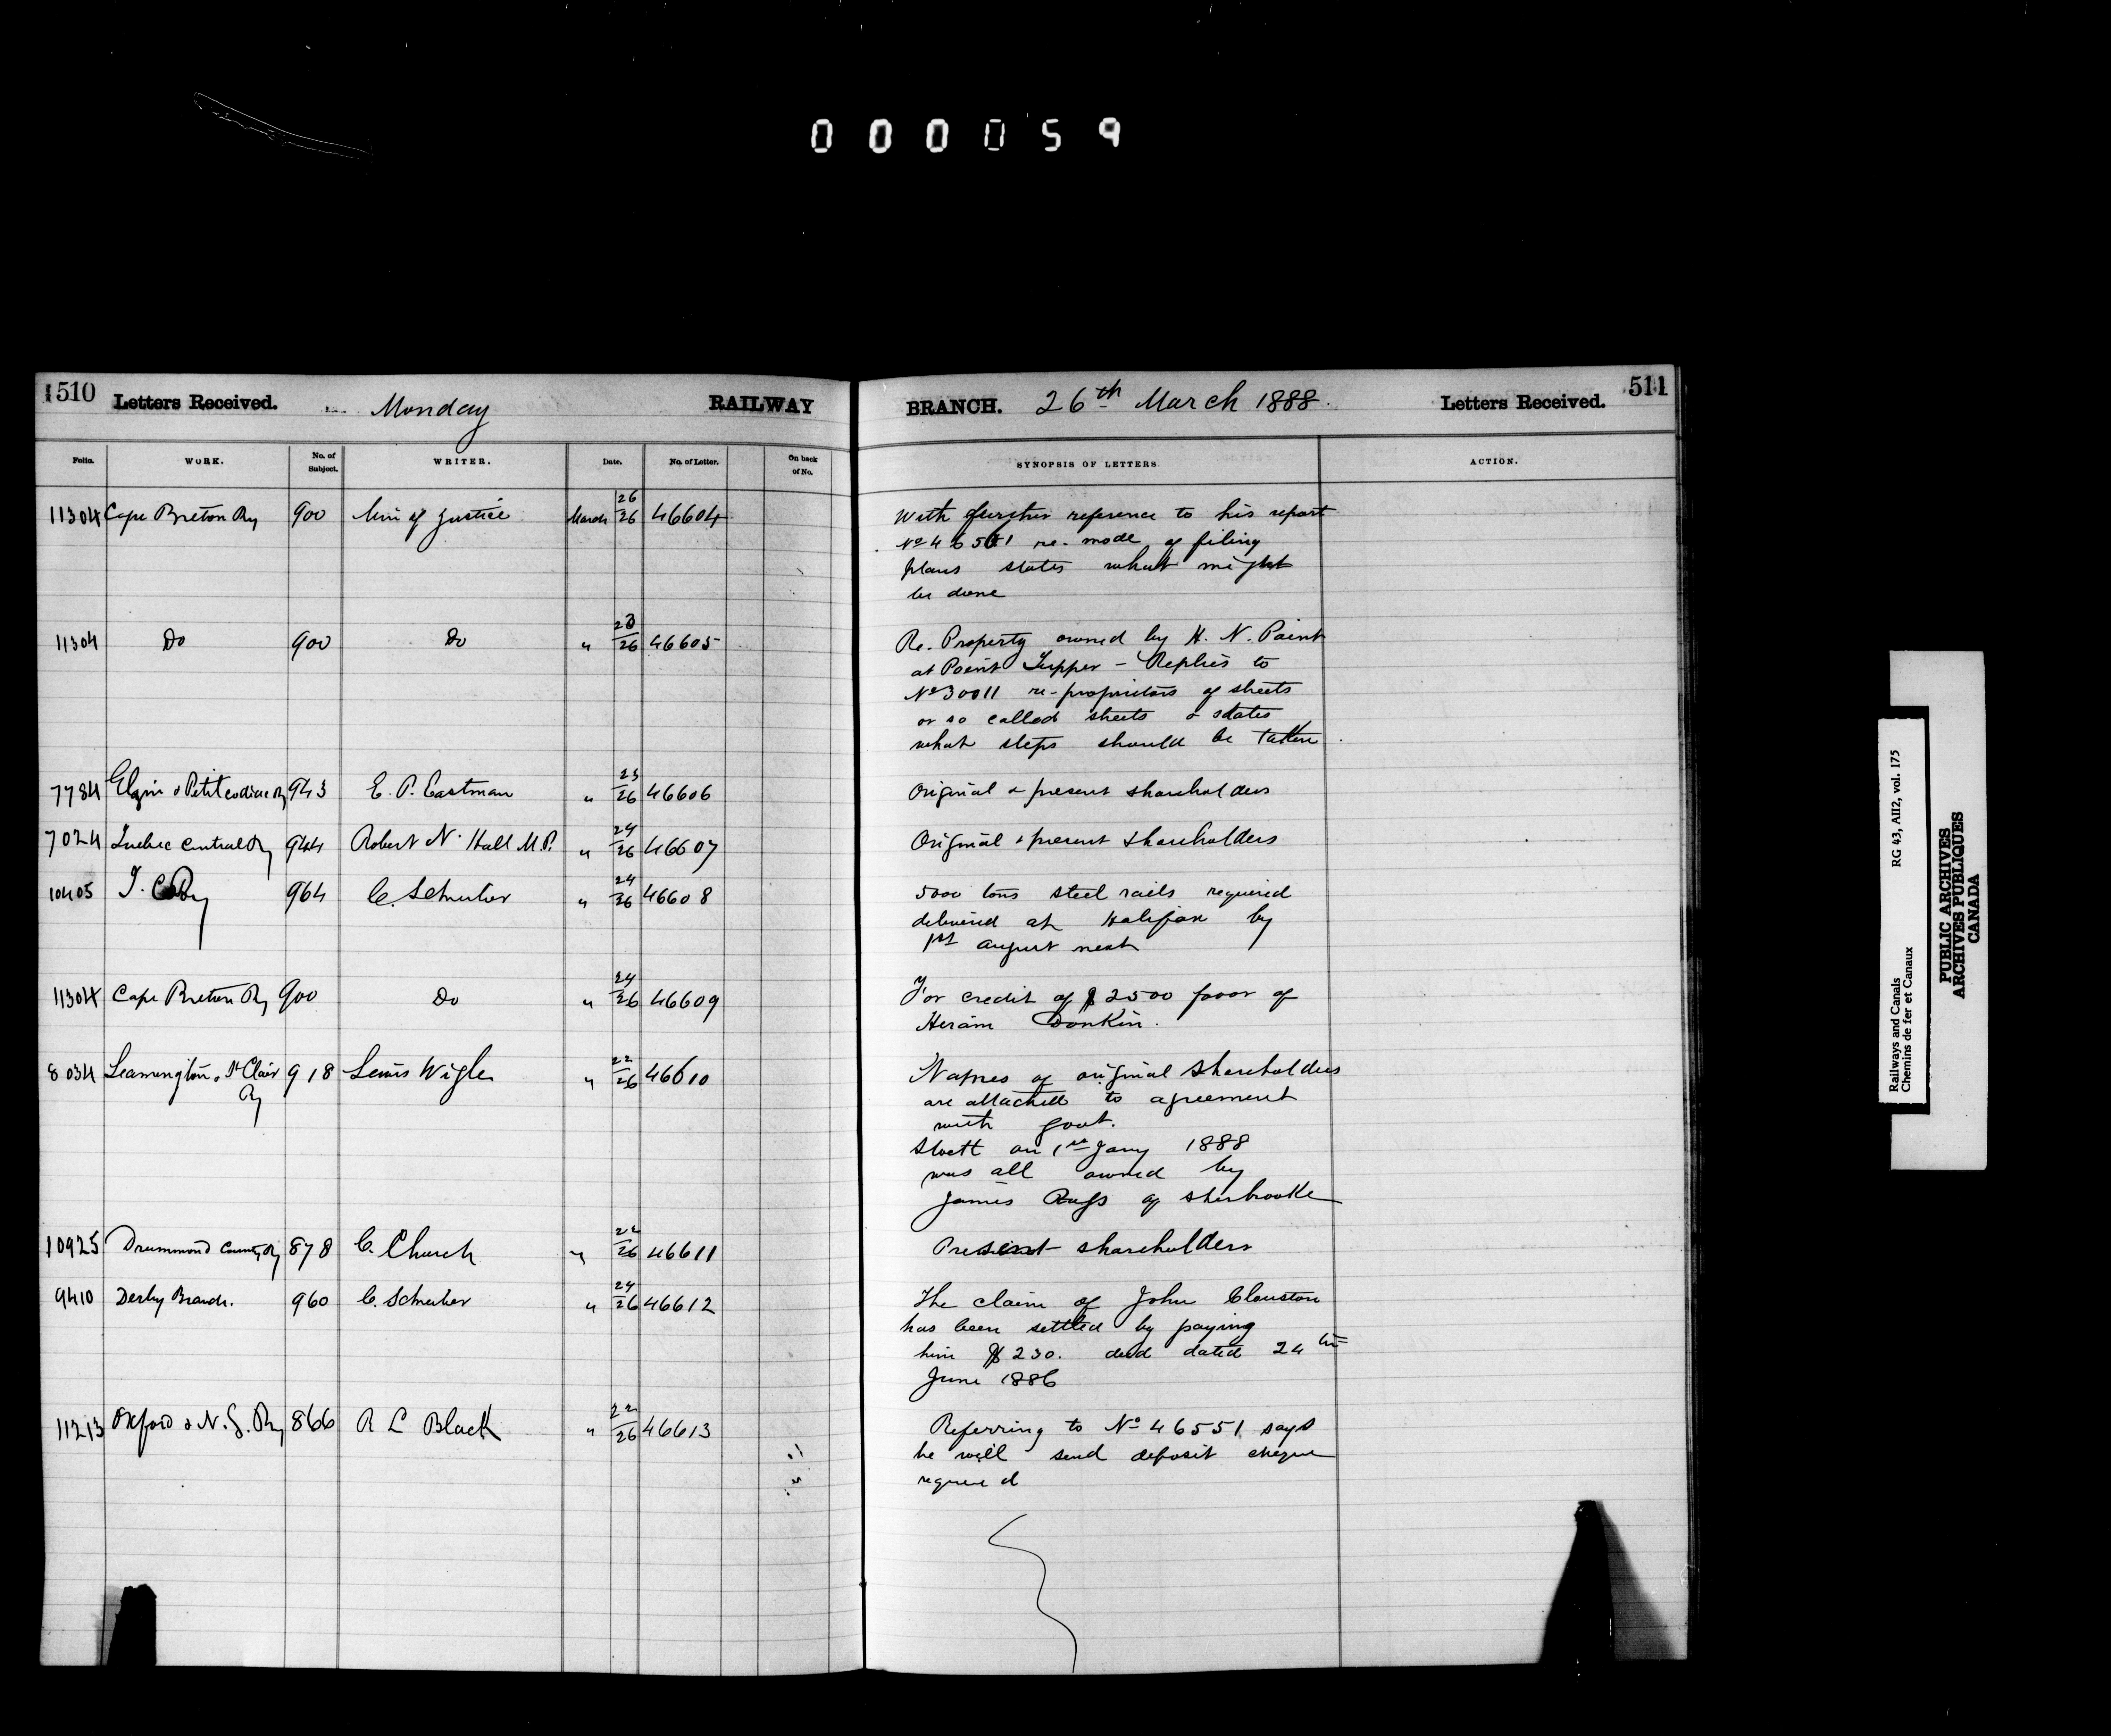 000059
510 Letters Received. Monday RAILWAY
BRANCH. 26th March 1888. Letters Received. 511
Folio. WORK. No. of Subject. WRITER. Date. No. of Letter. On back of No.
SYNOPSIS OF LETTERS. ACTION.
11304 Cape Breton Ry 900 Min of Justice March 26/26 46604
With further reference to his report
No 46551 re. mode of filing
plans states what might
be done
11304 Do 900 Do " 23/26 46605
Re. Property owned by H. N. Paint
at Point Tupper - Replies to
No 30011 re-proprietors of streets
or so called streets & states
what steps should be taken.
7784 Elgin & Petitcodiac Ry 943 E. P. Eastman " 23/26 46606
Original & present shareholders
7024 Quebec Central Ry 944 Robert N. Hall M.P. " 24/26 46607
Original & present shareholders
10405 I. C. Ry 964 C. Schreiber " 24/26 46608
5000 tons steel rails required
delivered at Halifax by
1st August next
11304 Cape Breton Ry 900 Do " 24/26 46609
For credit of $2500 favor of
Hiram Donkin.
8034 Leamington & St Clair Ry 918 Lewis Wigle " 22/26 46610
Names of original shareholders
are attached to agreement
with Govt.
Stock on 1st Jany 1888
was all owned by
James of Sherbrooke
10925 Drummond County Ry 878 C. Church " 22/26 46611
Present shareholders
9410 Derby Branch. 960 C. Schreiber " 24/26 46612
The claim of John Clouston
has been settled by paying
him $230. deed dated 24th
June 1886
11213 Oxford & N. G. Ry 866 R L Black " 22/26 46613
Referring to No 46551 says
he will send deposit cheque
required
Railways and Canals RG 43, AII2, vol. 175
Chemins de fer et Canaux
PUBLIC ARCHIVES
ARCHIVES PUBLIQUES
CANADA